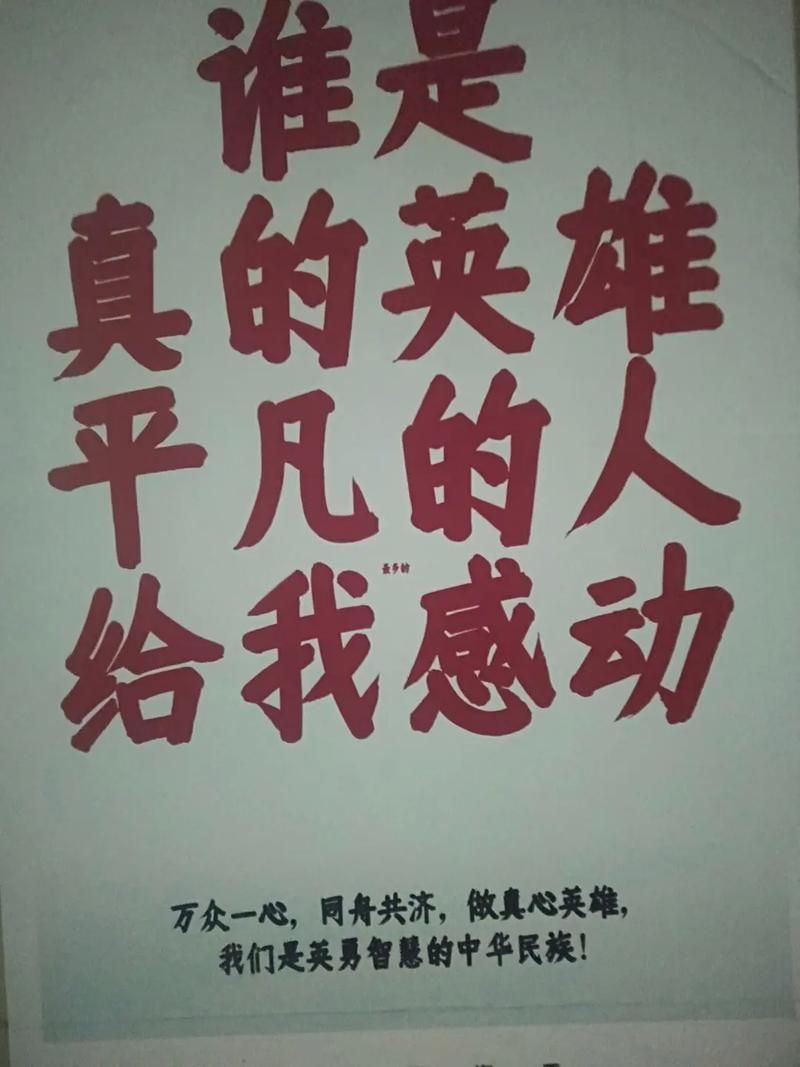 谁是
真的英雄
平凡的人
给我感动
最多的
万众一心，同舟共济，做真心英雄，
我们是英勇智慧的中华民族！